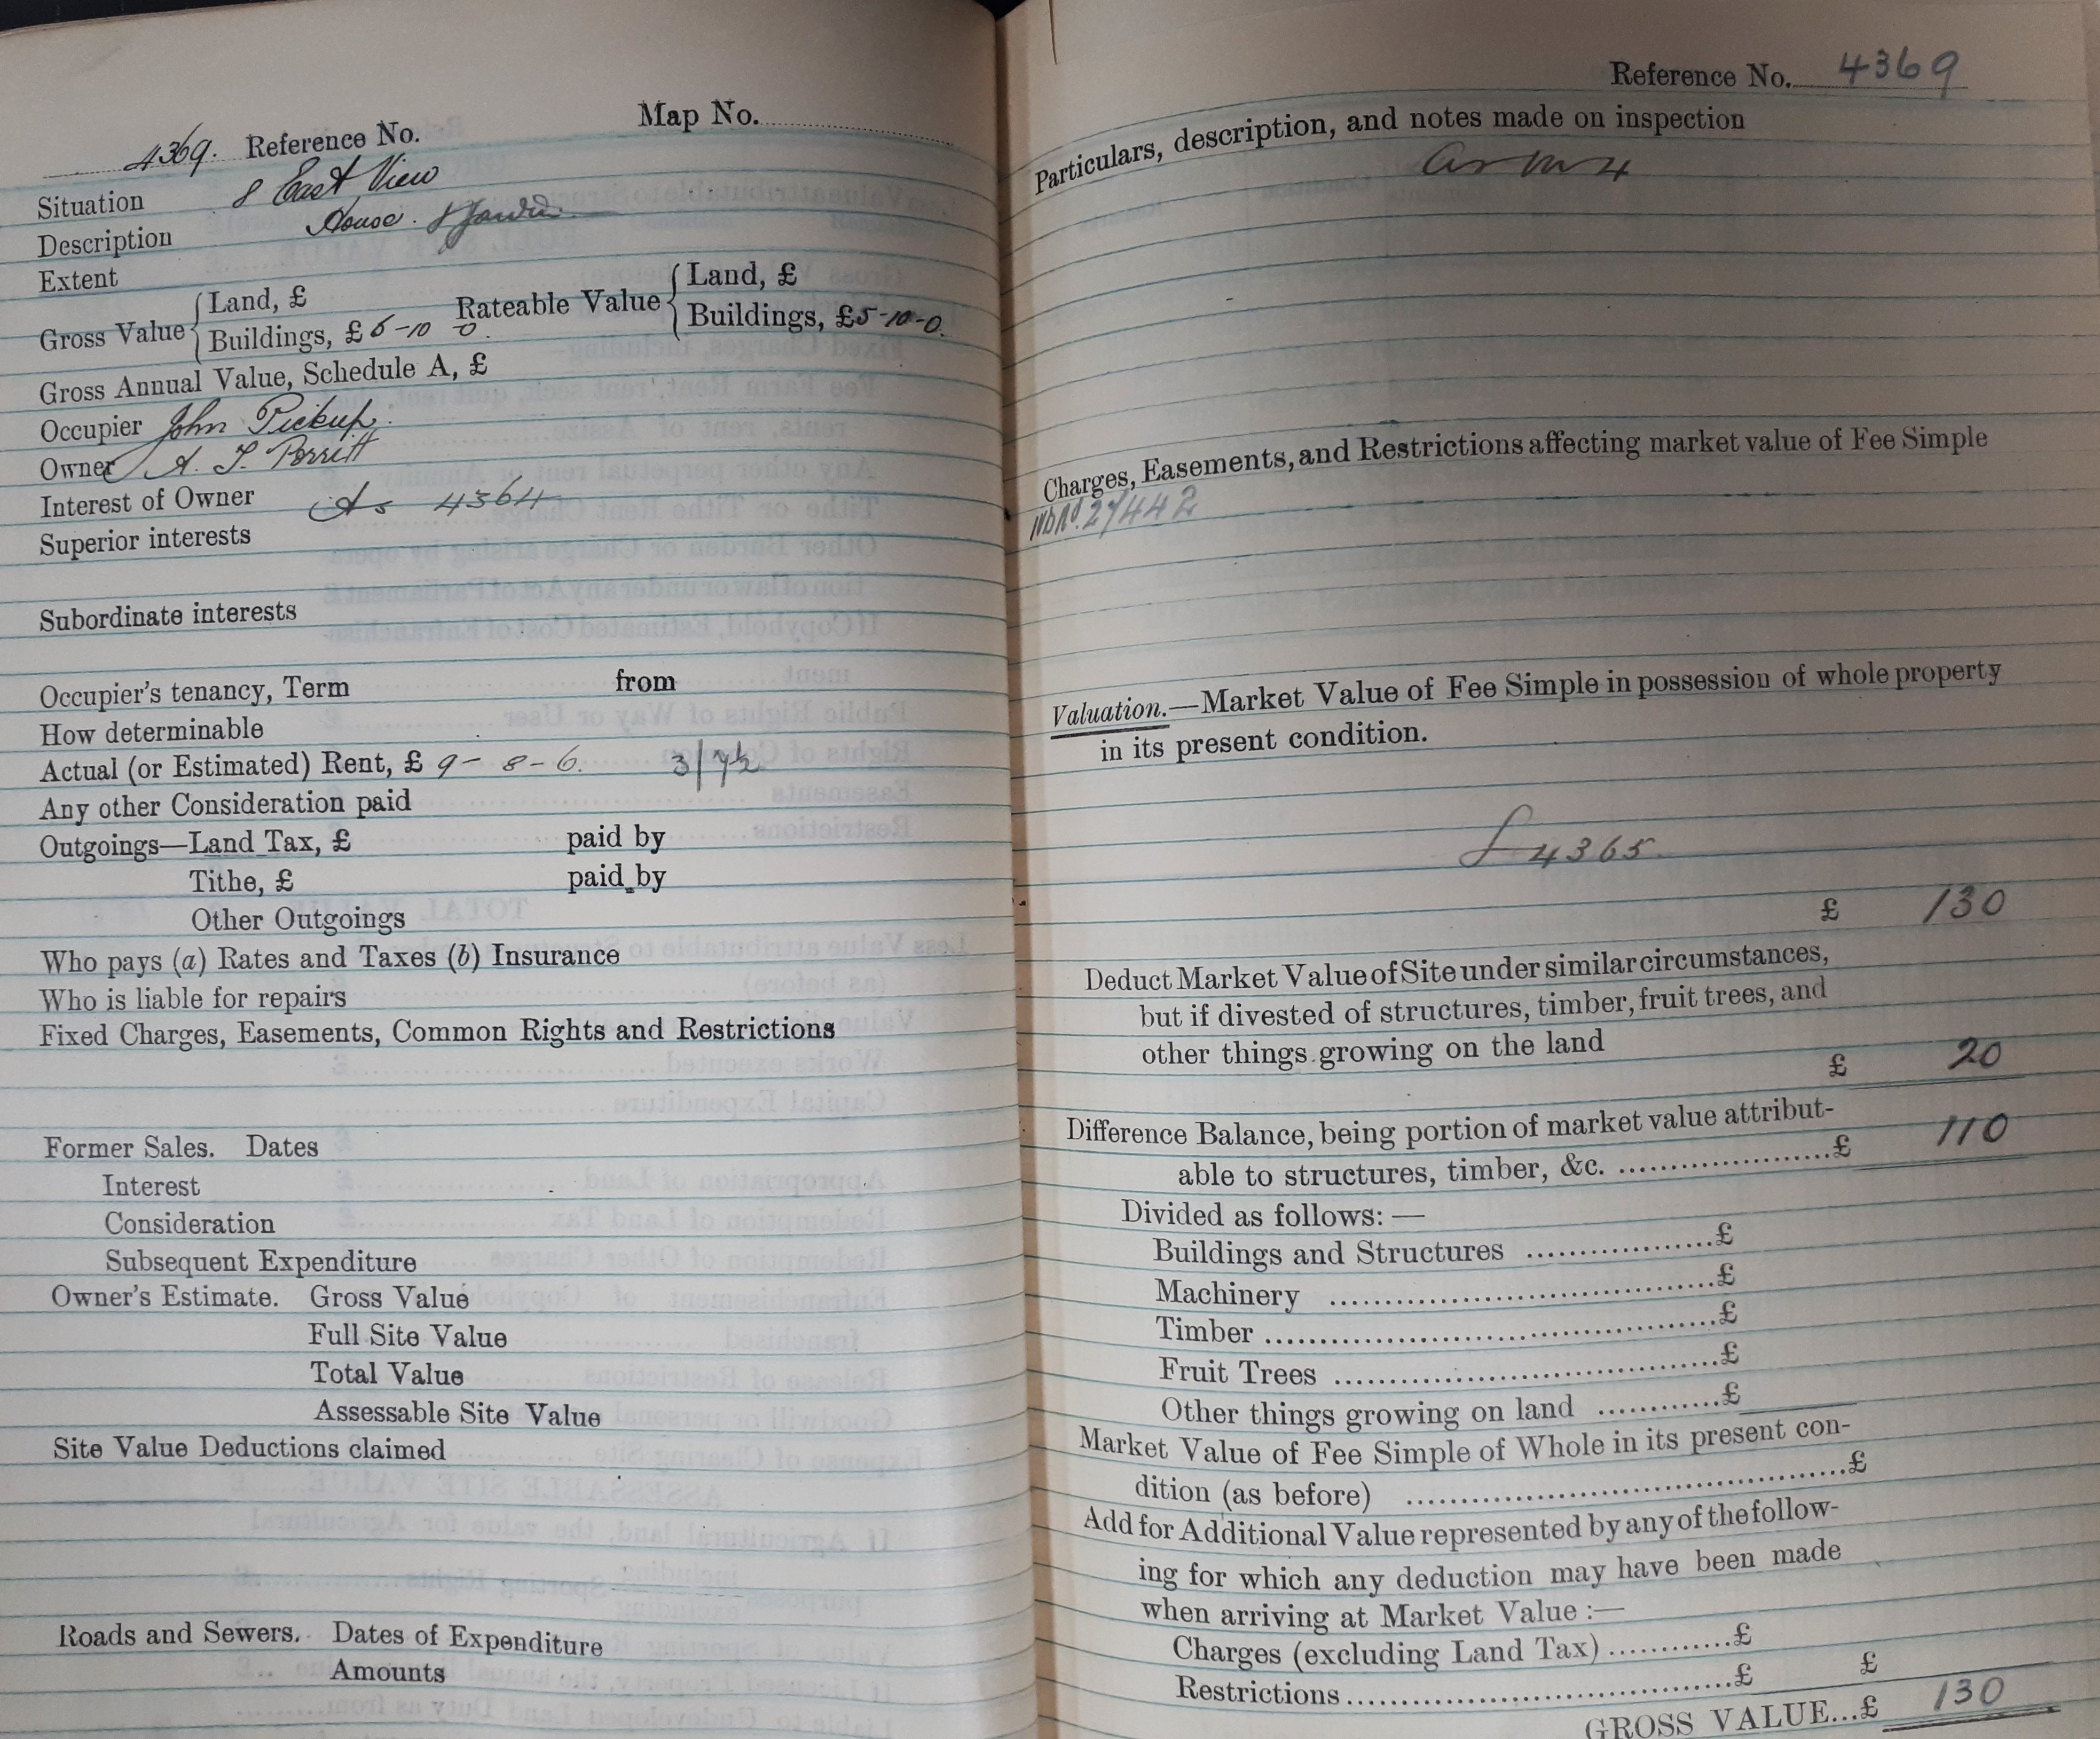 4369. Reference No. Map No.
Situation 8 East View
Description House &
Extent
Gross Value { Land, £ Rateable Value { Land, £
Buildings, £ 6-10 0. Buildings, £5-10-0.
Gross Annual Value, Schedule A, £
Occupier John Pickup.
Owner A. T. Porritt
Interest of Owner As 4364
Superior interests
Subordinate interests
Occupier's tenancy, Term from
How determinable
Actual (or Estimated) Rent, £ 9-8-6. 3/7½
Any other Consideration paid
Outgoings—Land Tax, £ paid by
Tithe, £ paid by
Other Outgoings
Who pays (a) Rates and Taxes (b) Insurance
Who is liable for repairs
Fixed Charges, Easements, Common Rights and Restrictions
Former Sales. Dates
Interest
Consideration
Subsequent Expenditure
Owner's Estimate. Gross Value
Full Site Value
Total Value
Assessable Site Value
Site Value Deductions claimed
Roads and Sewers. Dates of Expenditure
Amounts
Reference No. 4369
Particulars, description, and notes made on inspection
as 4
Charges, Easements, and Restrictions affecting market value of Fee Simple
27442
Valuation.—Market Value of Fee Simple in possession of whole property
in its present condition.
4365
£ 130
Deduct Market Value of Site under similar circumstances,
but if divested of structures, timber, fruit trees, and
other things growing on the land
£ 20
Difference Balance, being portion of market value attribut-
able to structures, timber, &c. ....................£ 110
Divided as follows:—
Buildings and Structures ..................£
Machinery ..................£
Timber ..................£
Fruit Trees ..................£
Other things growing on land ............£
Market Value of Fee Simple of Whole in its present con-
dition (as before) ..................£
Add for Additional Value represented by any of the follow-
ing for which any deduction may have been made
when arriving at Market Value :—
Charges (excluding Land Tax)............£
Restrictions..................£ £
GROSS VALUE...£ 130